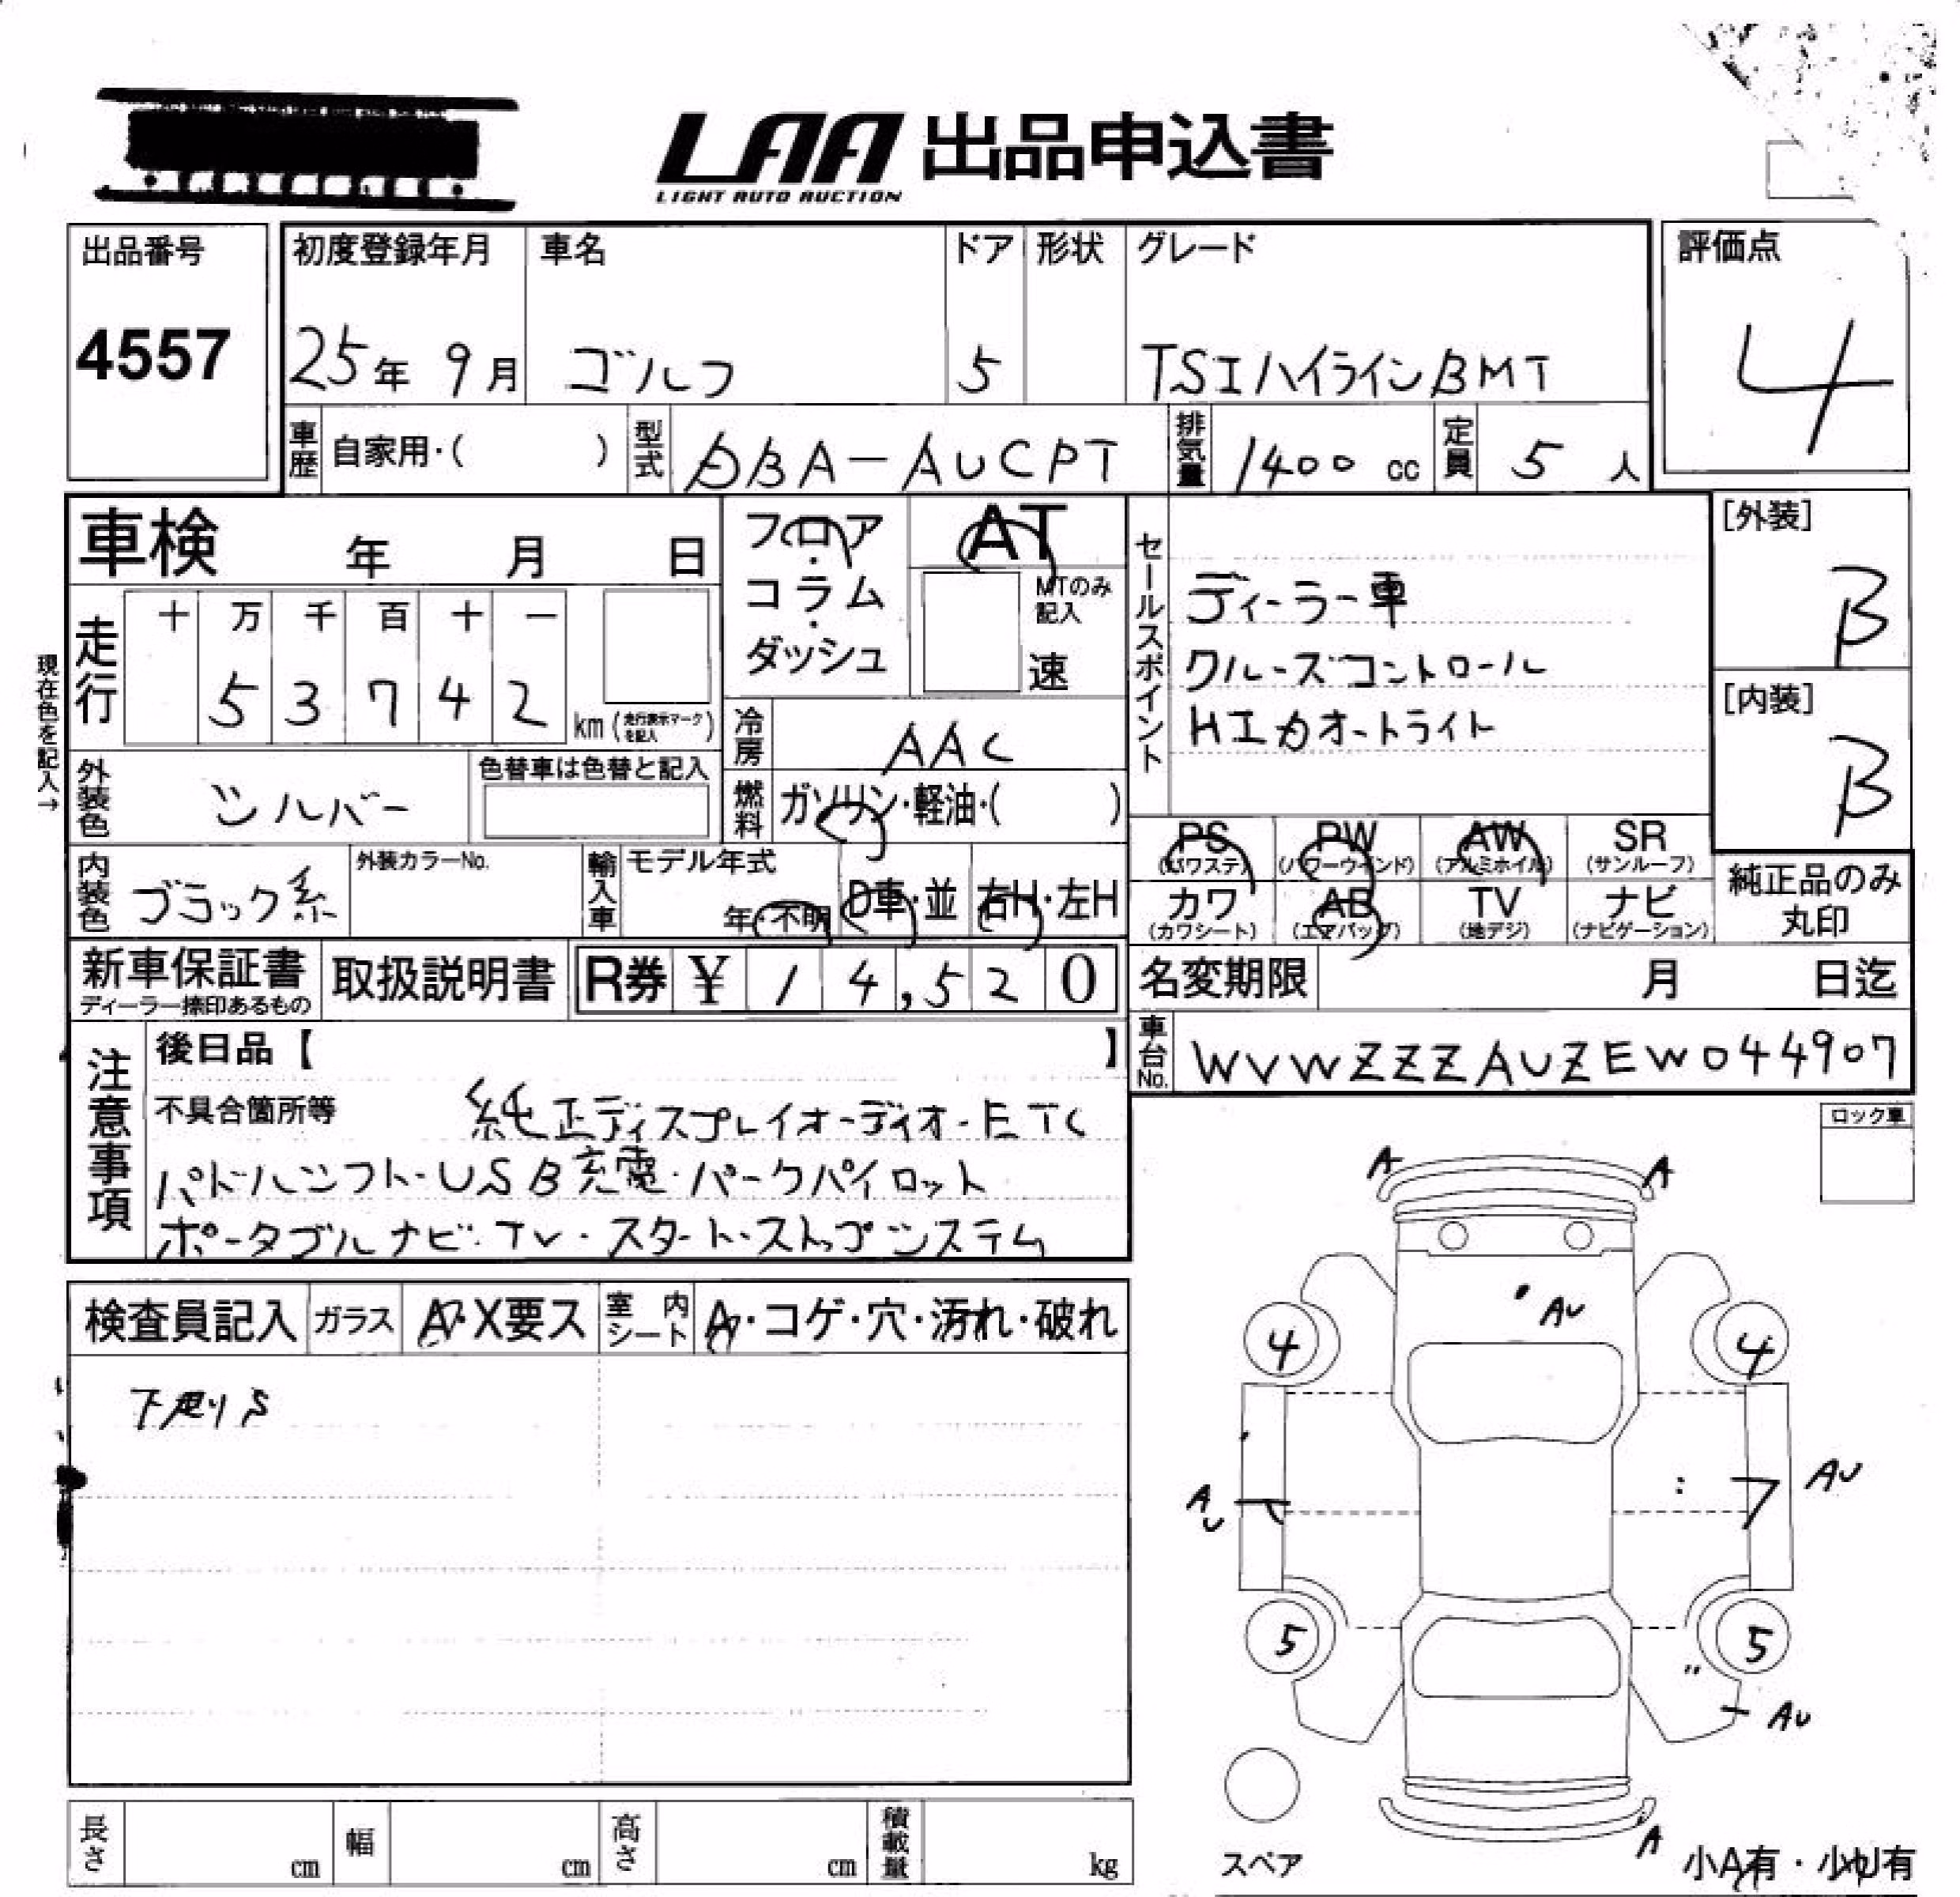 LAA 出品申込書
LIGHT AUTO AUCTION
出品番号
4557
初度登録年月 車名 ドア 形状 グレード
25年 9月 ゴルフ 5 TSIハイラインBMT
評価点
4
車歴 自家用・( ) 型式 DBA-AUCPT 排気量 1400 cc 定員 5 人
車検 年 月 日
フロア・コラム・ダッシュ
AT
MTのみ記入
速
セールスポイント
ディーラー車
クルーズコントロール
HIDオートライト
[外装]
B
[内装]
B
現在色を記入→
走行 十 万 千 百 十 一
5 3 7 4 2 km (走行表示マークを記入)
冷房 AAC
外装色 シルバー 色替車は色替と記入
燃料 ガソリン・軽油・( )
PS (パワステ) PW (パワーウインド) AW (アルミホイル) SR (サンルーフ)
カワ (カワシート) AB (エアバッグ) TV (地デジ) ナビ (ナビゲーション)
純正品のみ丸印
内装色 ブラック系 外装カラーNo. 輸入車 モデル年式 年・不明 D車・並 右H・左H
新車保証書 ディーラー捺印あるもの 取扱説明書 R券 ¥ 14,520
名変期限 月 日迄
車台No. WVWZZZAUZEW044907
注意事項
後日品【 】
不具合箇所等 純正ディスプレイオーディオ・ETC
パドルシフト・USB充電・パークパイロット
ポータブルナビ・TV・スタート・ストップシステム
ロック車
検査員記入 ガラス A・X要ス 室内シート A・コゲ・穴・汚れ・破れ
下廻りS
A A
AU
4 4
AU AU
5 5
AU
A
スペア
小A有・小U有
長さ cm 幅 cm 高さ cm 積載量 kg